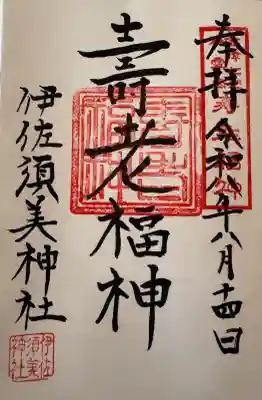 奉拝 令和八年八月十四日
壽老福神
伊佐須美神社
伊佐須美神社